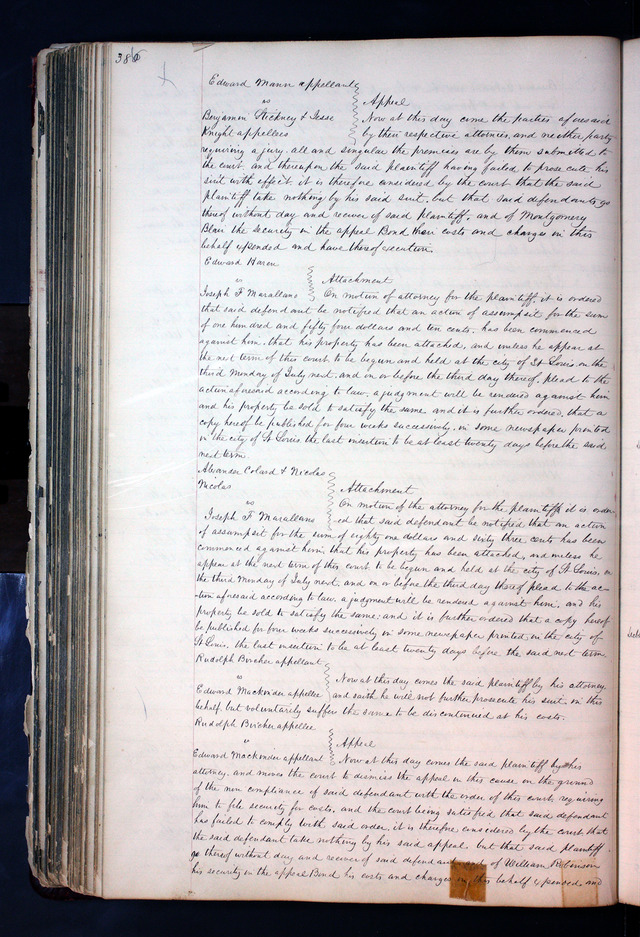 386
Edward Mann appellant
vs Appeal
Benjamin Stickney & Jesse Now at this day come the parties aforesaid
Knight appellees by their respective attornies, and neither party
requiring a jury. all and singular the premises are by them submitted to
the court and thereupon the said plaintiff having failed to prosecute his
suit with effect, it is therefore considered by the court that the said
plaintiff take nothing by his said suit. but that said defendants go
thereof without day and recover of said plaintiff, and of Montgomery
Blair the security in the appeal Bond their costs and charges in this
behalf expended and have thereof execution.
Edward Haren
vs Attachment
Joseph F. Marallano On motion of attorney for the plaintiff, it is ordered
that said defendant be notified that an action of assumpsit for the sum
of one hundred and fifty four dollars and ten cents. has been commenced
against him. that his property has been attached, and unless he appear at
the next term of this court to be begun and held at the city of St Louis on the
third Monday of July next. and on or before the third day thereof, plead to the
action aforesaid according to law, a judgment will be rendered against him
and his property be sold to satisfy the same and it is further ordered, that a
copy hereof be published for four weeks successively, in some newspaper printed
in the city of St. Louis the last insertion to be at least twenty days before the said
next term.
Alexander Colard & Nicolas
Nicolas Attachment
vs On motion of the attorney for the plaintiffs it is order-
Joseph F. Marallano ed that said defendant be notified that an action
of assumpsit for the sum of eighty one dollars and sixty three cents has been
commenced against him, that his property has been attached, and unless he
appear at the next term of this court to be begun and held at the city of St. Louis, on
the third Monday of July next. and on or before the third day thereof plead to the ac-
-tion aforesaid according to law. a judgment will be rendered against him. and his
property be sold to satisfy the same. and it is further ordered that a copy hereof
be published for four weeks successively in some newspaper printed in the city of
St. Louis, the last insertion to be at least twenty days before the said next term
Rudolph Bircher appellant
vs Now at this day comes the said plaintiff by his attorney.
Edward Mackinder appellee and saith he will not further prosecute his suit. in this
behalf. but voluntarily suffers the same to be discontinued at his costs.
Rudolph Bircher appellee
vs Appeal
Edward Mackinder appellant Now at this day comes the said plaintiff by his
attorney. and moves the court to dismiss the appeal in this cause on the ground
of the non compliance of said defendant with the order of this court, requiring
him to file security for costs. and the court being satisfied, that said defendant
has failed to comply with said order. it is therefore considered by the court that
the said defendant take nothing by his said appeal but that said plaintiff
go thereof without day and recover of said defendant and of William Robinson
his security in the appeal Bond his costs and charges in this behalf expended and